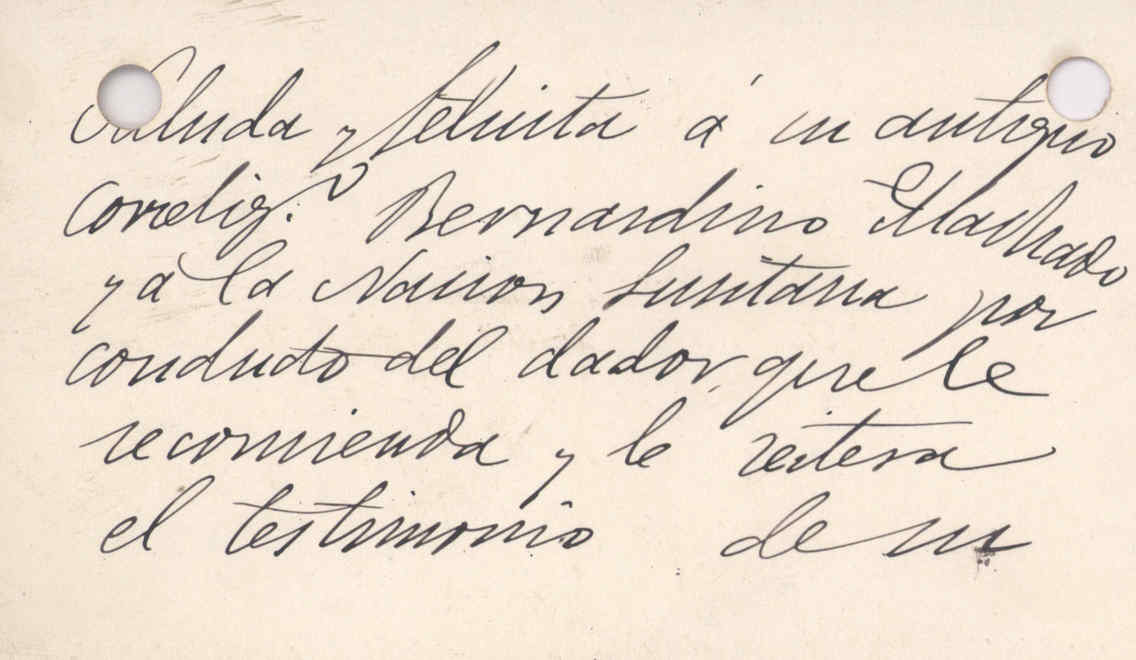 Saluda y felicita á su antiguo
correlig.º Bernardino Machado
y a la Nacion Lusitana por
conducto del dador, que le
recomienda y le reitera
el testimonio de su